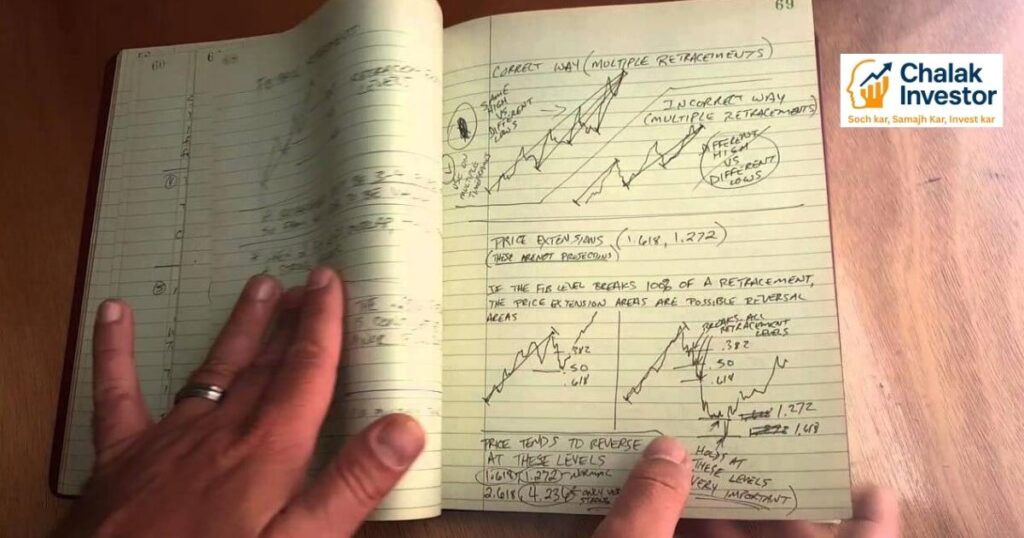 69
CORRECT WAY (MULTIPLE RETRACEMENTS)
SAME
HIGH
VS
DIFFERENT
LOWS
INCORRECT WAY
(MULTIPLE RETRACEMENTS)
DIFFERENT
HIGH
VS
DIFFERENT
LOWS
USE ON
MULTIPLE
PRICE EXTENSIONS (1.618, 1.272)
(THESE ARE NOT PROJECTIONS)
IF THE FIB LEVEL BREAKS 100% OF A RETRACEMENT,
THE PRICE EXTENSION AREAS ARE POSSIBLE REVERSAL
AREAS
.382
.50
.618
BREAKS ALL
RETRACEMENT
LEVELS
.382
.50
.618
1.272
1.618
HOLDS AT
THESE LEVELS
VERY IMPORTANT)
PRICE TENDS TO REVERSE
AT THESE LEVELS
(1.618) (1.272) NORMAL
2.618 4.236 ONLY
STRONG
Chalak
Investor
Soch kar, Samajh Kar, Invest kar